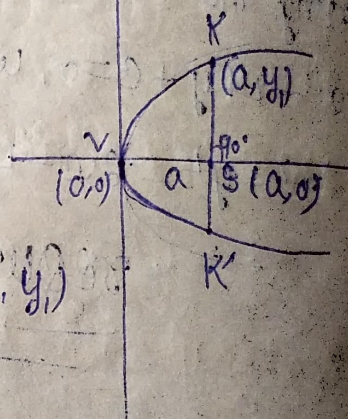 K
(a, y₁)
V 90°
(0,0) a S (a,0)
K'
, y₁)